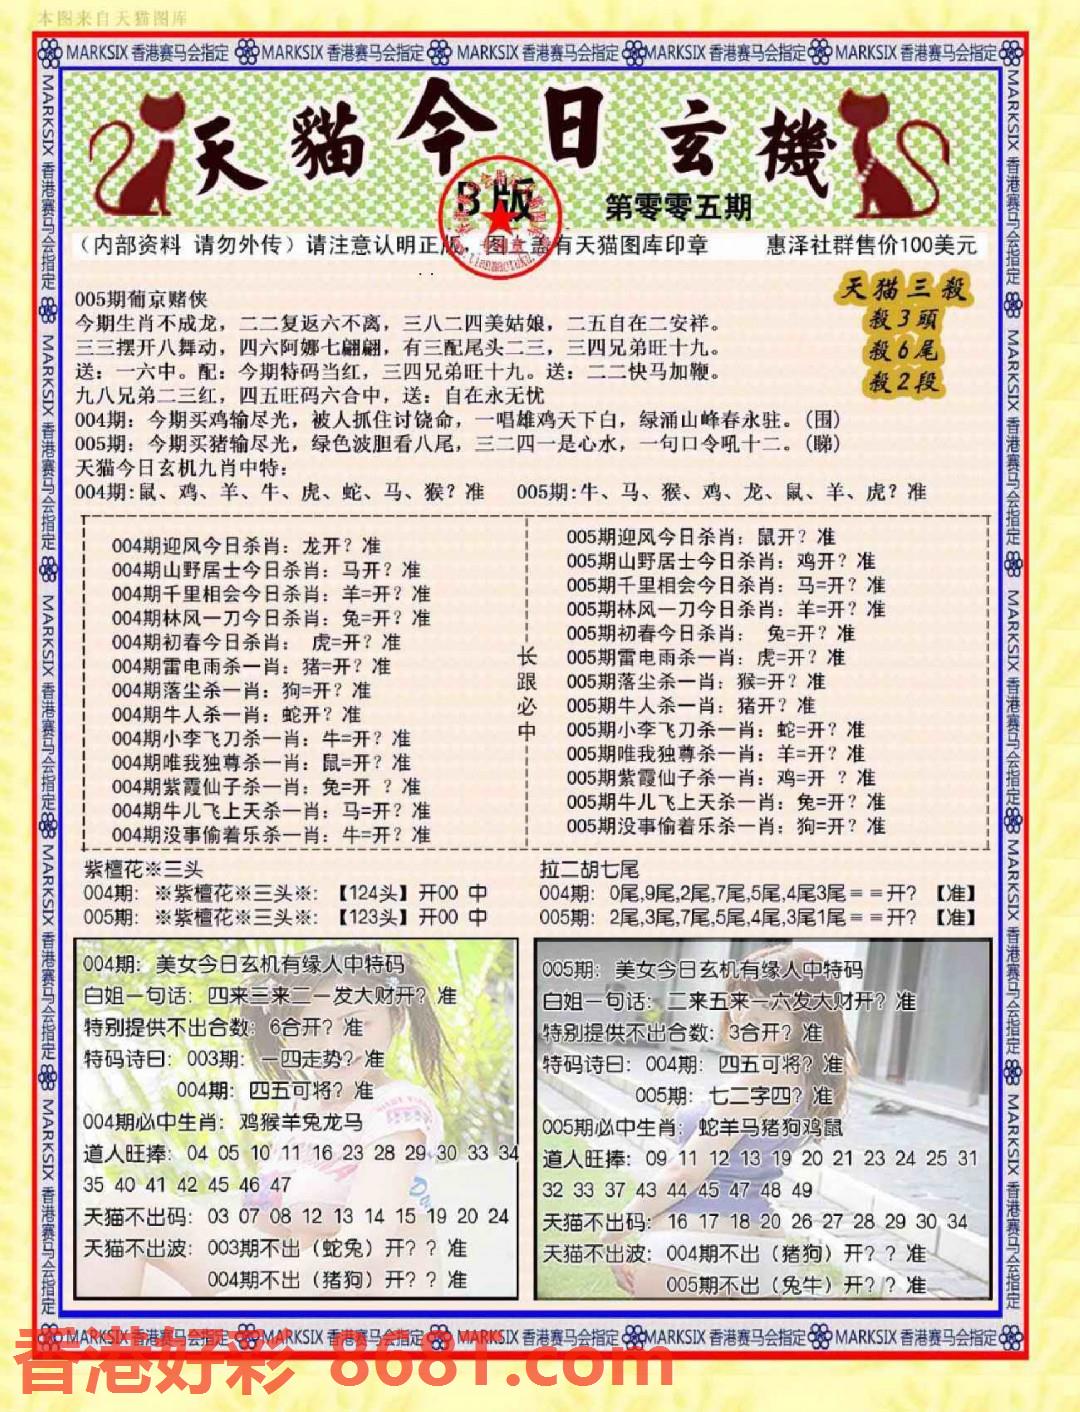 本图来自天猫图库
MARKSIX 香港赛马会指定 MARKSIX 香港赛马会指定 MARKSIX 香港赛马会指定 MARKSIX 香港赛马会指定 MARKSIX 香港赛马会指定
天貓今日玄機
B版 第零零五期
(内部资料 请勿外传)请注意认明正版,图上盖有天猫图库印章 惠泽社群售价100美元
天猫三殺
殺3頭
殺6尾
殺2段
005期葡京赌侠
今期生肖不成龙,二二复返六不离,三八二四美姑娘,二五自在二安祥。
三三摆开八舞动,四六阿娜七翩翩,有三配尾头二三,三四兄弟旺十九。
送:一六中。配:今期特码当红,三四兄弟旺十九。送:二二快马加鞭。
九八兄弟二三红,四五旺码六合中,送:自在永无忧
004期:今期买鸡输尽光,被人抓住讨饶命,一唱雄鸡天下白,绿涌山峰春永驻。(围)
005期:今期买猪输尽光,绿色波胆看八尾,三二四一是心水,一句口令吼十二。(睇)
天猫今日玄机九肖中特:
004期:鼠、鸡、羊、牛、虎、蛇、马、猴?准 005期:牛、马、猴、鸡、龙、鼠、羊、虎?准
004期迎风今日杀肖:龙开?准
004期山野居士今日杀肖:马开?准
004期千里相会今日杀肖:羊=开?准
004期林风一刀今日杀肖:兔=开?准
004期初春今日杀肖: 虎=开?准
004期雷电雨杀一肖:猪=开?准
004期落尘杀一肖:狗=开?准
004期牛人杀一肖:蛇开?准
004期小李飞刀杀一肖:牛=开?准
004期唯我独尊杀一肖:鼠=开?准
004期紫霞仙子杀一肖:兔=开 ?准
004期牛儿飞上天杀一肖:马=开?准
004期没事偷着乐杀一肖:牛=开?准
长跟必中
005期迎风今日杀肖:鼠开?准
005期山野居士今日杀肖:鸡开?准
005期千里相会今日杀肖:马=开?准
005期林风一刀今日杀肖:羊=开?准
005期初春今日杀肖: 兔=开?准
005期雷电雨杀一肖:虎=开?准
005期落尘杀一肖:猴=开?准
005期牛人杀一肖:猪开?准
005期小李飞刀杀一肖:蛇=开?准
005期唯我独尊杀一肖:羊=开?准
005期紫霞仙子杀一肖:鸡=开 ?准
005期牛儿飞上天杀一肖:兔=开?准
005期没事偷着乐杀一肖:狗=开?准
紫檀花※三头
004期: ※紫檀花※三头※: 【124头】开00 中
005期: ※紫檀花※三头※: 【123头】开00 中
拉二胡七尾
004期: 0尾,9尾,2尾,7尾,5尾,4尾3尾==开? 【准】
005期: 2尾,3尾,7尾,5尾,4尾,3尾1尾==开? 【准】
004期:美女今日玄机有缘人中特码
白姐一句话:四来三来二一发大财开?准
特别提供不出合数:6合开?准
特码诗曰:003期:一四走势?准
004期:四五可将?准
004期必中生肖:鸡猴羊兔龙马
道人旺捧:04 05 10 11 16 23 28 29 30 33 34
35 40 41 42 45 46 47
天猫不出码:03 07 08 12 13 14 15 19 20 24
天猫不出波:003期不出(蛇兔)开??准
004期不出(猪狗)开??准
005期:美女今日玄机有缘人中特码
白姐一句话:二来五来一六发大财开?准
特别提供不出合数:3合开?准
特码诗曰:004期:四五可将?准
005期:七二字四?准
005期必中生肖:蛇羊马猪狗鸡鼠
道人旺捧:09 11 12 13 19 20 21 23 24 25 31
32 33 37 43 44 45 47 48 49
天猫不出码:16 17 18 20 26 27 28 29 30 34
天猫不出波:004期不出(猪狗)开??准
005期不出(兔牛)开??准
MARKSIX 香港赛马会指定 MARKSIX 香港赛马会指定 MARKSIX 香港赛马会指定 MARKSIX 香港赛马会指定 MARKSIX 香港赛马会指定
香港好彩 8681.com